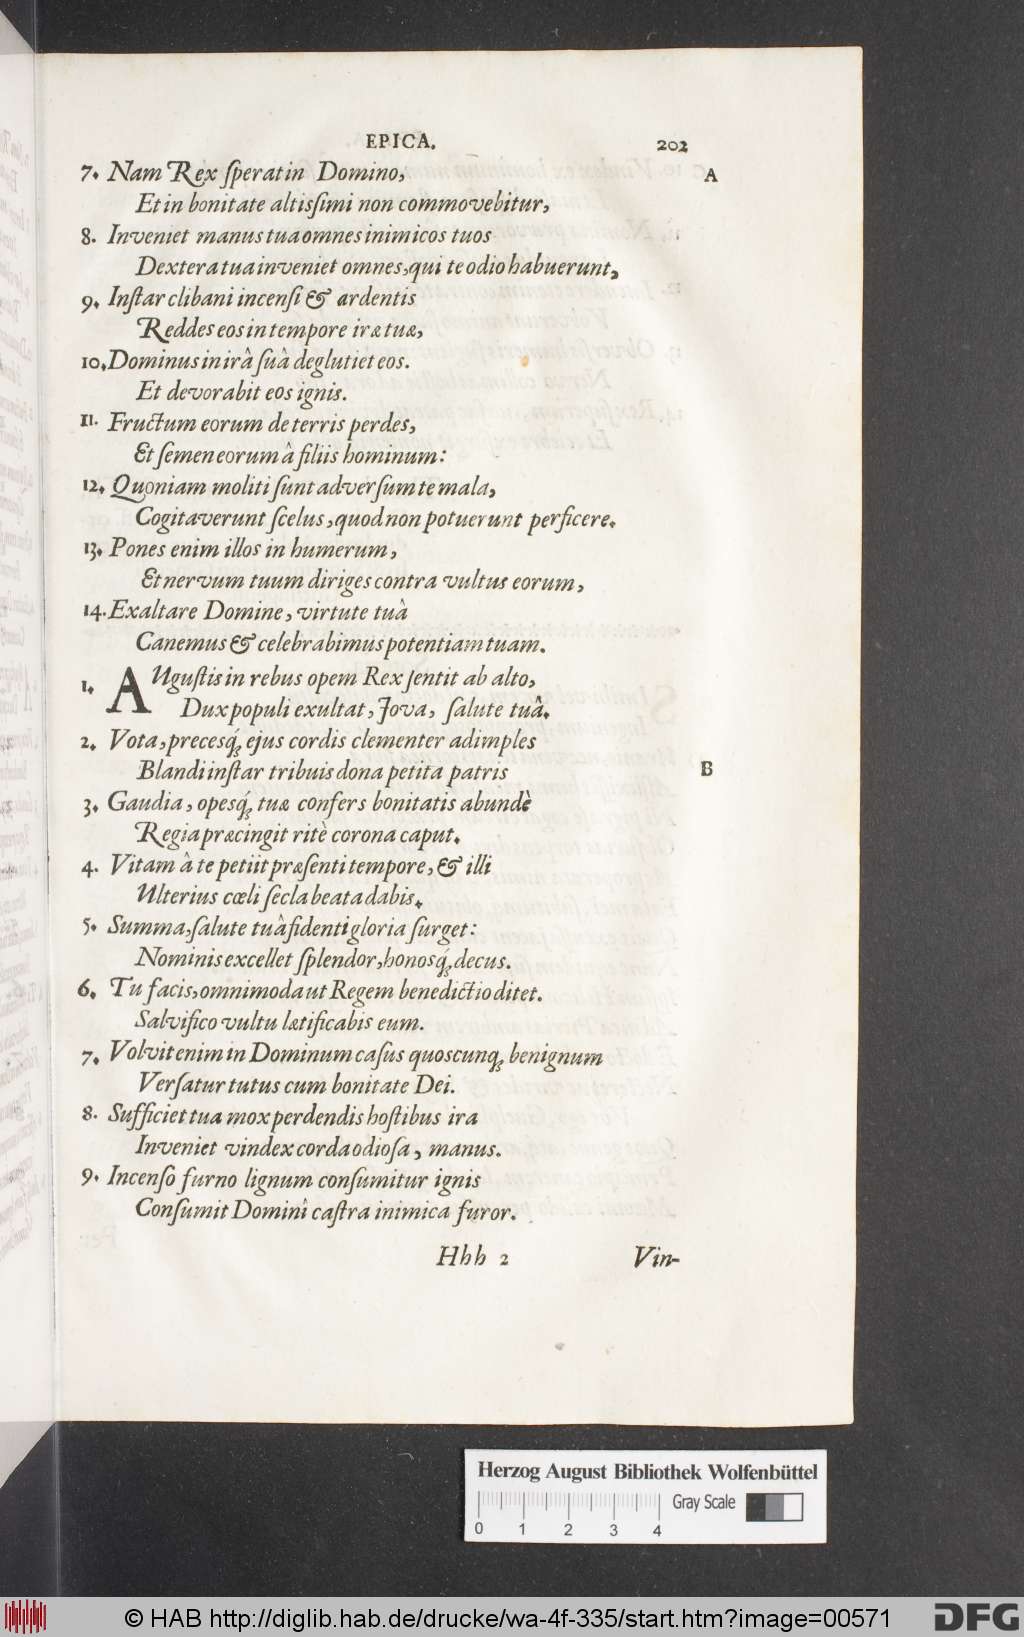 EPICA. 202
7. Nam Rex ſperat in Domino, A
Et in bonitate altiſſimi non commovebitur,
8. Inveniet manus tua omnes inimicos tuos
Dextera tua inveniet omnes, qui te odio habuerunt,
9. Inſtar clibani incenſi & ardentis
Reddes eos in tempore iræ tuæ,
10. Dominus in irâ ſuâ deglutiet eos.
Et devorabit eos ignis.
11. Fructum eorum de terris perdes,
Et ſemen eorum â filiis hominum:
12. Quoniam moliti ſunt adverſum te mala,
Cogitaverunt ſcelus, quod non potuerunt perficere.
13. Pones enim illos in humerum,
Et nervum tuum diriges contra vultus eorum,
14. Exaltare Domine, virtute tuâ
Canemus & celebrabimus potentiam tuam.
1. AUguſtis in rebus opem Rex ſentit ab alto,
Dux populi exultat, Jova, ſalute tuâ.
2. Vota, precesq́; ejus cordis clementer adimples
Blandi inſtar tribuis dona petita patris B
3. Gaudia, opesq́; tuæ confers bonitatis abundè
Regia præcingit ritè corona caput.
4. Vitam â te petiit præſenti tempore, & illi
Ulterius cœli ſecla beata dabis.
5. Summa, ſalute tuâ fidenti gloria ſurget:
Nominis excellet ſplendor, honosq́; decus.
6. Tu facis, omnimoda ut Regem benedictio ditet.
Salvifico vultu lætificabis eum.
7. Volvit enim in Dominum caſus quoscunq; benignum
Verſatur tutus cum bonitate Dei.
8. Sufficiet tua mox perdendis hoſtibus ira
Inveniet vindex corda odioſa, manus.
9. Incenſo furno lignum conſumitur ignis
Conſumit Domini caſtra inimica furor.
Hhh 2 Vin-
Herzog August Bibliothek Wolfenbüttel
Gray Scale
0 1 2 3 4
© HAB http://diglib.hab.de/drucke/wa-4f-335/start.htm?image=00571 DFG